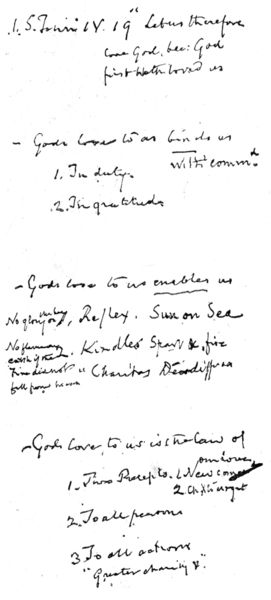 1. S. John IV. 19 "Let us therefore
love God, bec: God
first hath loved us
- Gods love to us binds us
1. In duty. with comm.d
2. In gratitude
- Gods love to us enables us
No glory, Reflex. Sun on Sea
Kindles Spark & fire
"Charitas Dei diffusa
- Gods love to us is the law of our love
1. Two Precepts. 1 New
2.
2. To all persons
3. To all actions
"Greater charity &."